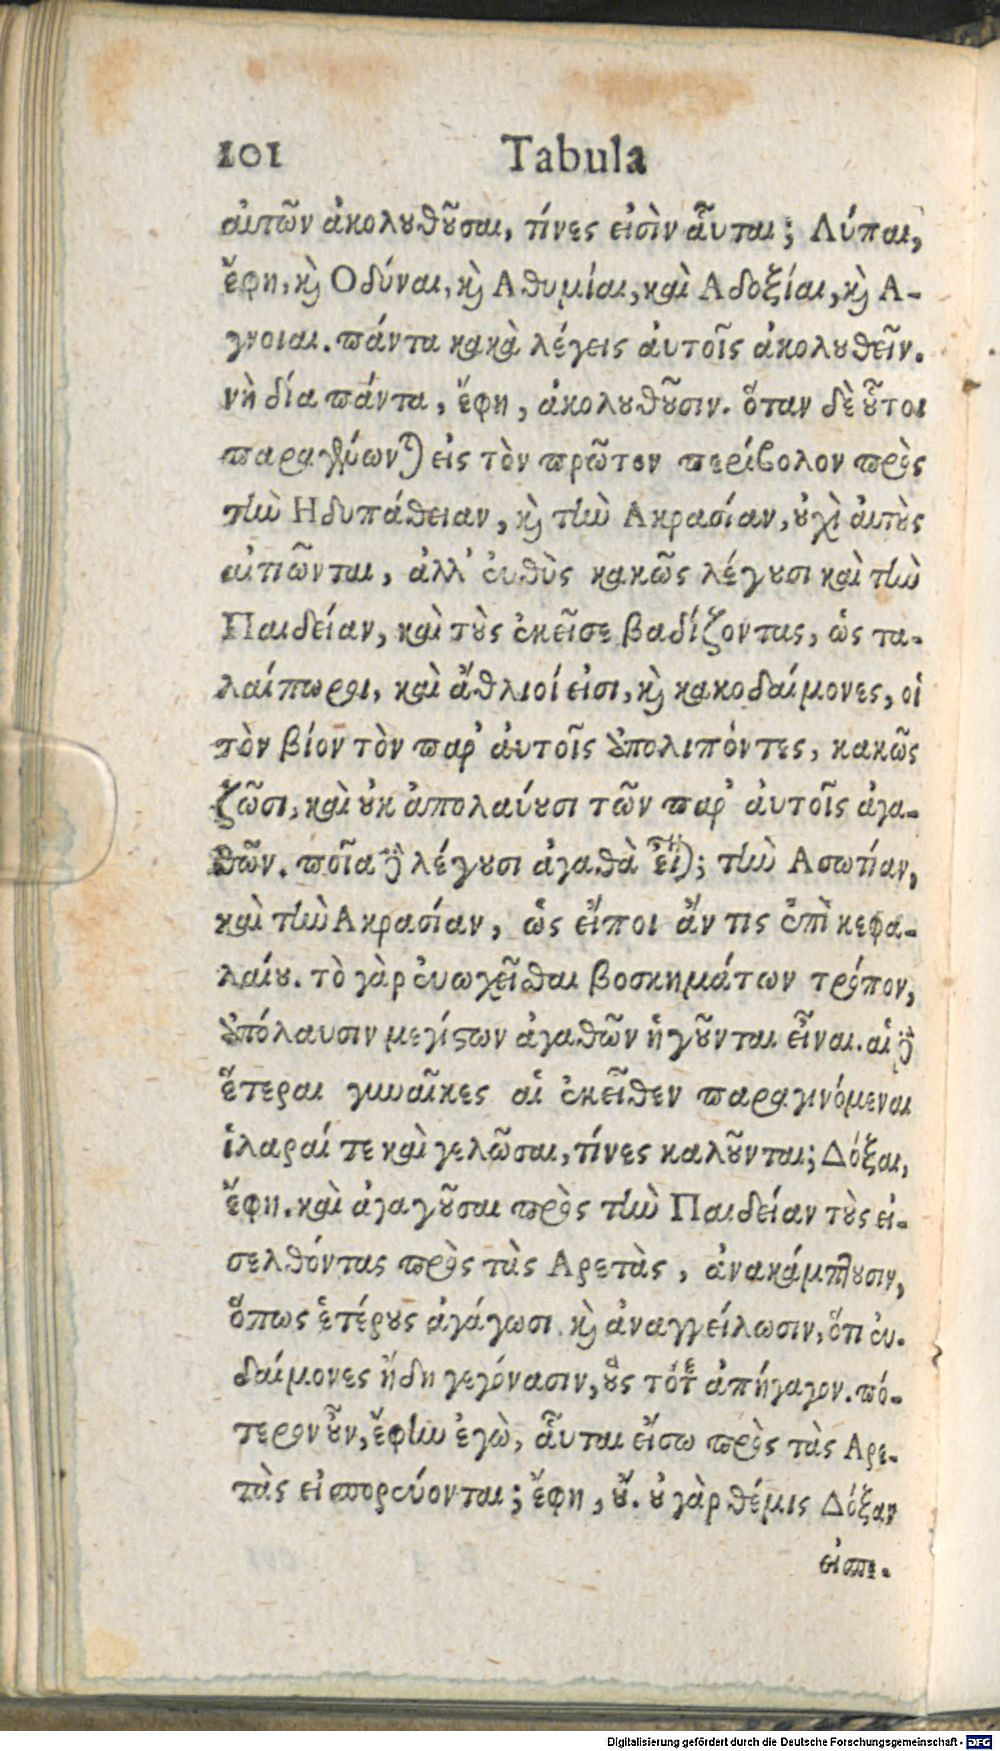 101 Tabula
αὐτῶν ἀκολȣθȣ͂σαι, τίνες εἰσὶν αὗται; Λύπαι,
ἔφη, ϗ Οδύναι, ϗ Αθυμίαι, καὶ Αδοξίαι, ϗ Α-
γνοιαι. πάντα κακὰ λέγεις ἀυτοῖς ἀκολȣθεῖν.
νὴ δία πάντα, ἔφη, ἀκολȣθȣ͂σιν. ὅταν δὲ ȣ̃τοι
παραγένωνται εἰς τὸν πρῶτον περίβολον πρὸς
τὴν Ηδυπάθειαν, ϗ τὴν Ακρασίαν, ȣ̓χὶ ἀυτȣ̀ς
αἰτιῶνται, ἀλλ' ἐυθὺς κακῶς λέγȣσι καὶ τὴν
Παιδείαν, καὶ τȣ̀ς ἐκεῖσε βαδίζοντας, ὡς τα-
λαίπωροι, καὶ ἄθλιοί εἰσι, ϗ κακοδαίμονες, οἱ
τὸν βίον τὸν παρ' ἀυτοῖς ἀπολιπόντες, κακῶς
ζῶσι, καὶ ȣ̓κ ἀπολαύȣσι τῶν παρ' ἀυτοῖς ἀγα-
θῶν. ποῖα δὲ λέγȣσι ἀγαθὰ εἶναι; τὴν Ασωτίαν,
καὶ τὴν Ακρασίαν, ὡς εἴποι ἄν τις ἐπὶ κεφα-
λαίȣ. τὸ γὰρ ἐυωχεῖσθαι βοσκημάτων τρόπον,
ἀπόλαυσιν μεγίϛων ἀγαθῶν ἡγȣ͂νται εἶναι. αἱ δὲ
ἕτεραι γυναῖκες αἱ ἐκεῖθεν παραγινόμεναι
ἱλαραί τε καὶ γελῶσαι, τίνες καλȣ͂νται; Δόξαι,
ἔφη. καὶ ἀγαγȣ͂σαι πρὸς τὴν Παιδείαν τȣ̀ς εἰ-
σελθόντας πρὸς τὰς Αρετὰς, ἀνακάμπτȣσιν,
ὅπως ἑτέρȣς ἀγάγωσι ϗ ἀναγγείλωσιν, ὅτι ἐυ-
δαίμονες ἤδη γεγόνασιν, ȣ̔̀ς τότε ἀπήγαγον. πό-
τερον ȣ̓͂ν, ἔφην ἐγὼ, αὗται εἴσω πρὸς τὰς Αρε-
τὰς εἰσπορεύονται; ἔφη, ȣ̓́. ȣ̓ γὰρ θέμις Δόξαν
εἰσπο-
Digitalisierung gefördert durch die Deutsche Forschungsgemeinschaft - DFG